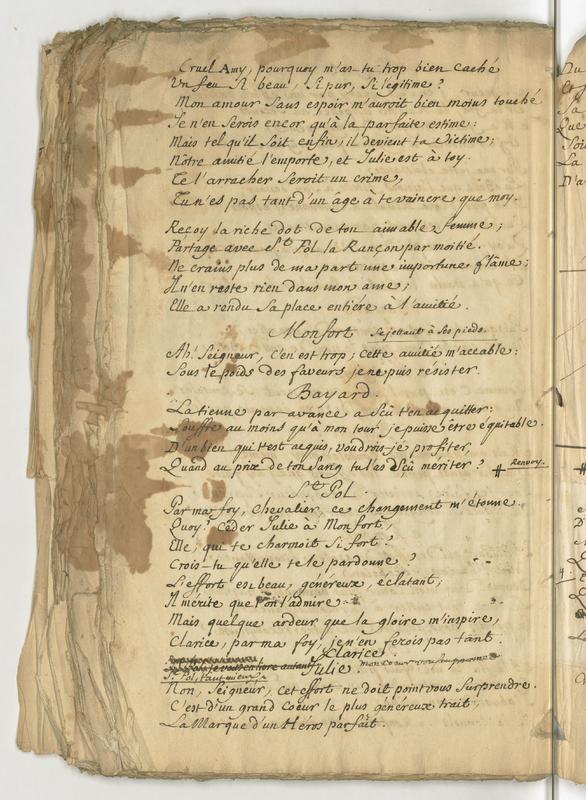 Cruel Amy, pourquoy m'as-tu trop bien caché
Un feu si beau, si pur, si légitime ?
Mon amour sans espoir m'auroit bien moins touché
Je n'en serois encor qu'à la parfaite estime :
Mais tel qu'il soit enfin, il devient ta victime ;
Nôtre amitié l'emporte, et Julie est à toy.
Te l'arracher seroit un crime,
Tu n'es pas tant d'un âge à te vaincre que moy.
Reçoy la riche dot de ton aimable femme ;
Partage avec St. Pol la Rançon par moitié.
Ne crains plus de ma part une importune flâme ;
Il n'en reste rien dans mon ame ;
Elle a rendu sa place entiére à l'amitié.
Monfort se jettant à ses pieds.
Ah! Seigneur, c'en est trop ; cette amitié m'accable :
Sous le poids des faveurs je ne puis résister.
Bayard.
La tienne par avance a sçû t'en acquitter :
Souffre au moins qu'à mon tour je puisse être équitable.
D'un bien qui t'est acquis, voudrois-je profiter,
Quand au prix de ton sang tu l'as sçû mériter ? # Renvoy.
St. Pol
Par ma foy, Chevalier, ce changement m'étonne.
Quoy! Céder Julie à Monfort,
Elle, qui te charmoit si fort ?
Crois-tu qu'elle te le pardonne ?
L'effort est beau, généreux, éclatant ;
Il mérite que l'on l'admire :
Mais quelque ardeur que la gloire m'inspire,
Clarice, par ma foy, je n'en ferois pas tant.
Clarice.
St. Pol. Tant mieux.
Julie. mon coeur vous
Non, Seigneur, cet effort ne doit point vous surprendre.
C'est d'un grand Coeur le plus généreux trait,
La Marque d'un Héros parfait.